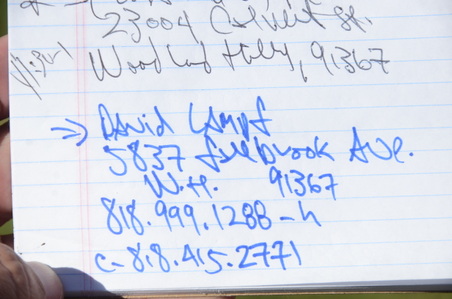 23004 Calvert St.
Woodland Hills, 91367
David Lampf
5837 Fallbrook Ave.
W.H. 91367
818.999.1288-h
c-818.415.2771